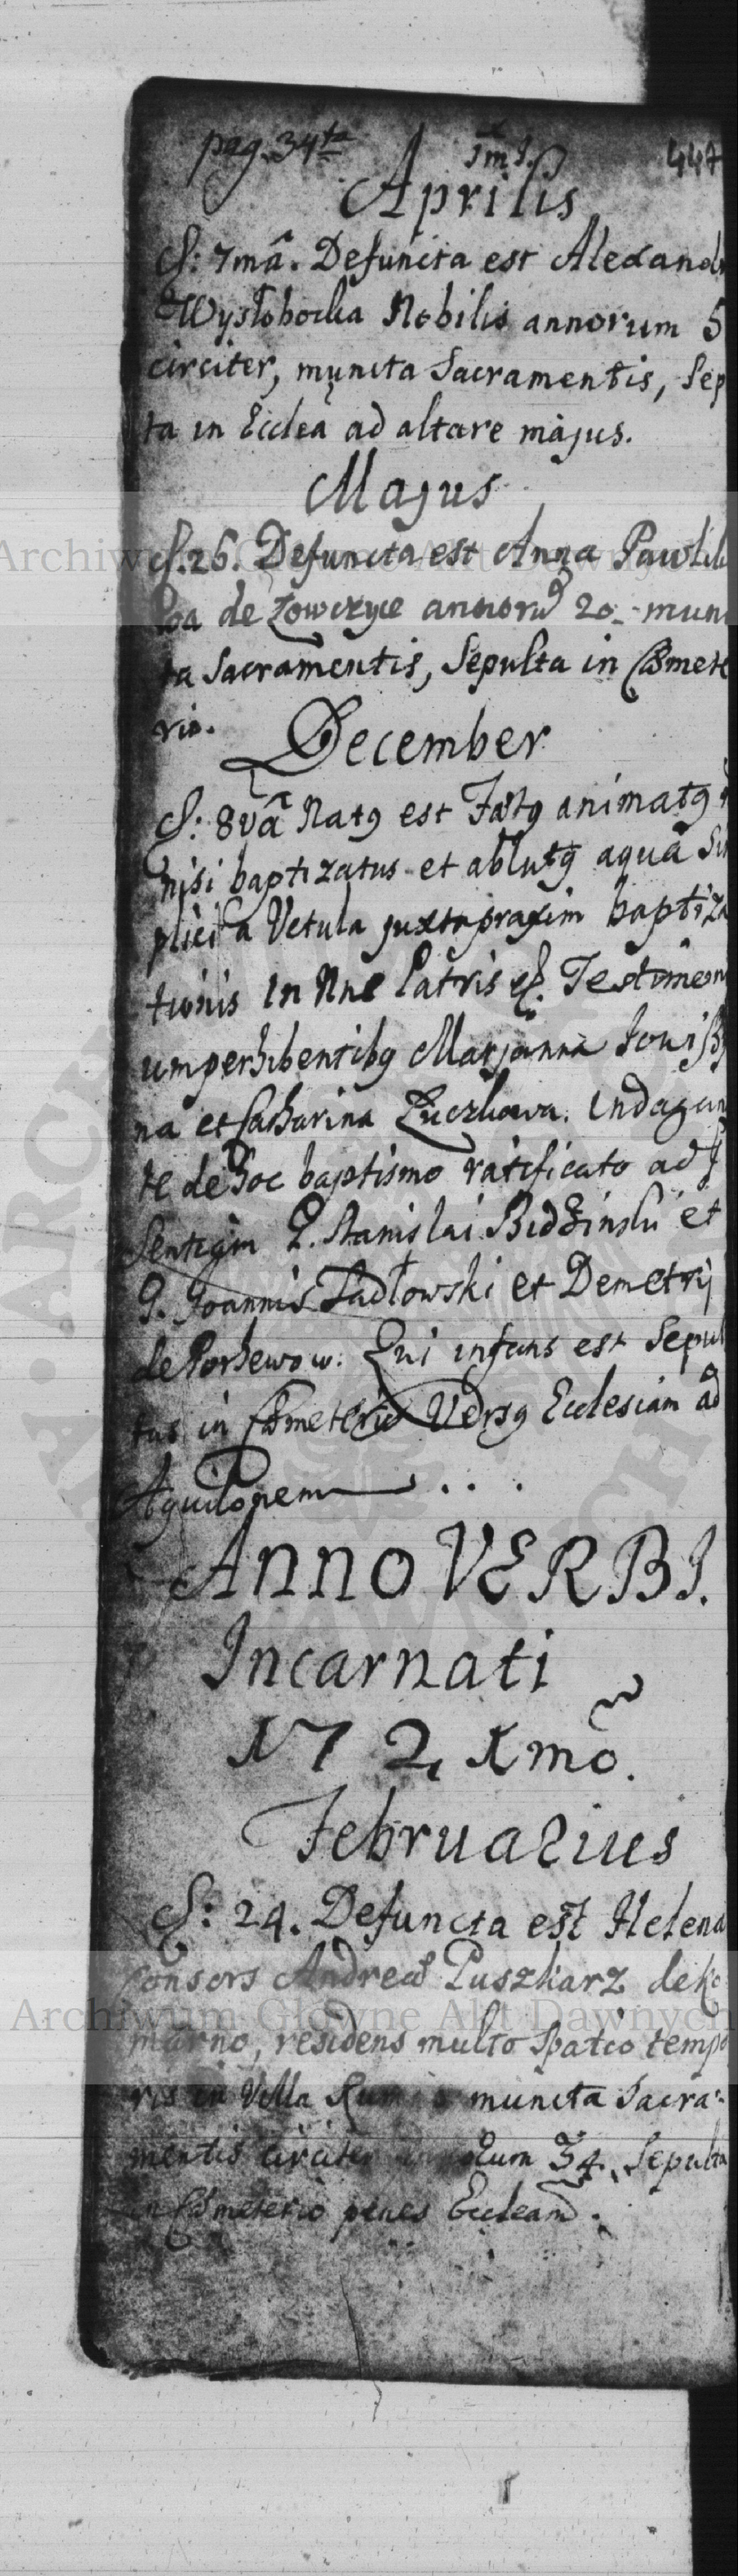 pag. 34ta
447
Aprilis
d: 7mâ. Defuncta est Alexand
Wysłobocka Nobilis annorum 5
circiter, muncta Sacramentis, Sep
ta in Eccleâ ad altare majus.
Majus
d. 26. Defuncta est Anna Pawlik
de Łowczyce annorū 20 mun
ta Sacramentis, Sepulta in Cæmete
rio.
December
d: 8vâ Natq est Fætq animatq
nisi baptizatus et ablutq aquâ Sim
plici a Vetula juxta praxim baptiza
tionis in Nne Patris et Testimoni
um perhibentibq Marjanna
na et Catharina Łuczkowa. Indagan
te de hoc baptismo ratificato ad
Sentiam P. Stanislai Bidzinski et
P. Joannis Sadłowski et Demetrij
de Porhewow. Qui infans est Sepul
tus in Cæmeterio Versq Ecclesiam ad
Aquilonem . . .
Anno VERBI.
Incarnati
172 Xmō.
Februarius
d: 24. Defuncta est Helena
Consors Andreæ Puszkarz de Ko
marno, residens multo spatio tempo
ris in Villa muncta Sacra-
mentis circiter 34, Sepulta
in Cæmeterio penes Eccleam.
Archiwum Główne Akt Dawnych